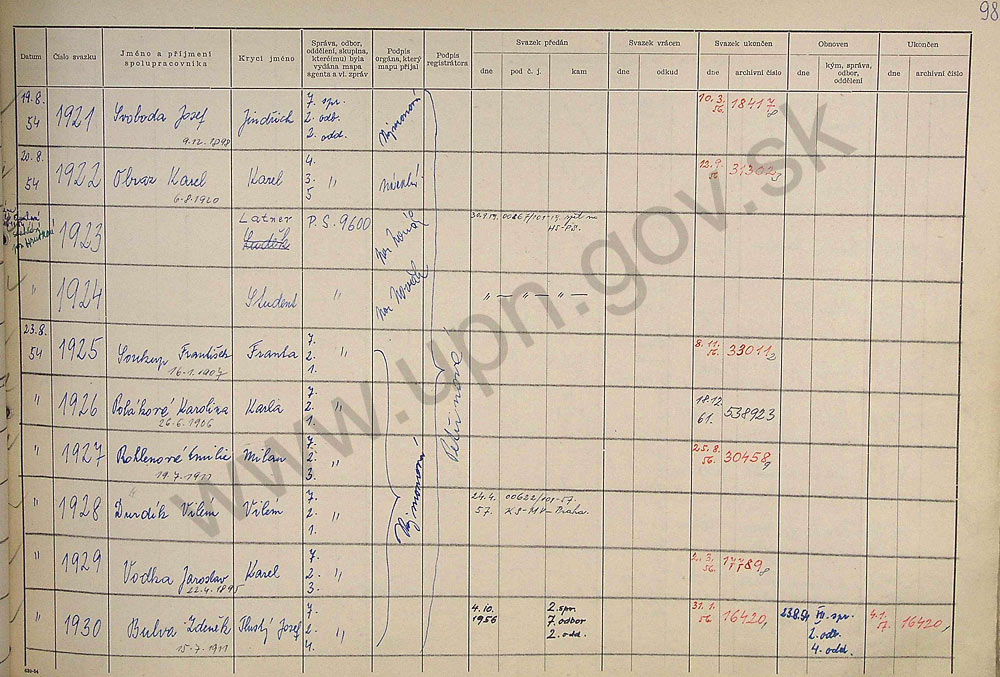 98
Datum
Číslo svazku
Jméno a příjmení
spolupracovníka
Krycí jméno
Správa, odbor,
oddělení, skupina,
které(mu) byla
vydána mapa
agenta a vl. zpráv
Podpis
orgána, který
mapu přijal
Podpis
registrátora
Svazek předán
dne
pod č. j.
kam
Svazek vrácen
dne
odkud
Svazek ukončen
dne
archivní číslo
Obnoven
dne
kým, správa,
odbor,
oddělení
Ukončen
dne
archivní číslo
19.8.
54
1921
Svoboda Josef
9.12.1898
Jindřich
7. spr.
2. odb.
2. odd.
10.3.
56.
18417
8
20.8.
54
1922
Obraz Karel
6.8.1920
Karel
4.
3. "
5
12.9.
56
31302
3
1923
Latner
Luděk
P.S. 9600
"
1924
Student
"
" — " — " —
23.8.
54
1925
Soukup František
16.1.1907
Franta
7.
2. "
1.
8.11.
56.
33011
2
"
1926
Poláková Karolina
26.6.1906
Karla
7.
2. "
1.
18.12.
61.
538923
"
1927
Rohlenová Emilie
19.7.1911
Milan
7.
2. "
3.
25.8.
56.
30458
9
"
1928
Durdík Vilém
Vilém
7.
2. "
1.
24.4.
57.
00622/101-57.
KS-MV-Praha.
"
1929
Vodka Jaroslav
22.4.1895
Karel
7.
2. "
3.
2.3.
56.
17789
8
"
1930
Bulva Zdeněk
15.7.1911
Tlustý Josef
7.
2. "
4.
4.10.
1956
2. spr.
7. odbor
2. odd.
31.1.
56
16420,
VII. spr.
2. odb.
4. odd.
4.1.
57.
16420,
Petrinová
www.upn.gov.sk